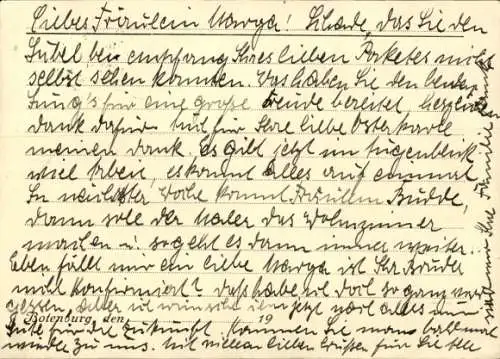 Liebes Fräulein Marga! Schade, das Sie den
Jübel bei empfang Ihres lieben Paketes nicht
selbst sehen konnten. Was haben Sie den beiden
Jung's für eine große Freude bereitet, herzlich
dank dafür. Und für Ihre liebe Osterkarte
meinen dank, es gibt jetzt im Augenblick
viel Arbeit, es kommt alles auf einmal
In nächster Woche kommt Fräulein Budde,
dann soll der Maler das Wohnzimmer
machen u. so geht es dann immer weiter.
Eben fällt mir ein liebe Marga ist Ihr Bruder
nicht konfirmiert? Daß habe ich doch so ganz ver
gessen, aber ich wünsche ihm jetzt noch alles
Gute für die Zukunft. Kommen Sie man bald mal
wieder zu uns. Mit vielen lieben Grüßen für Sie
Familie
Boienburg, den 19